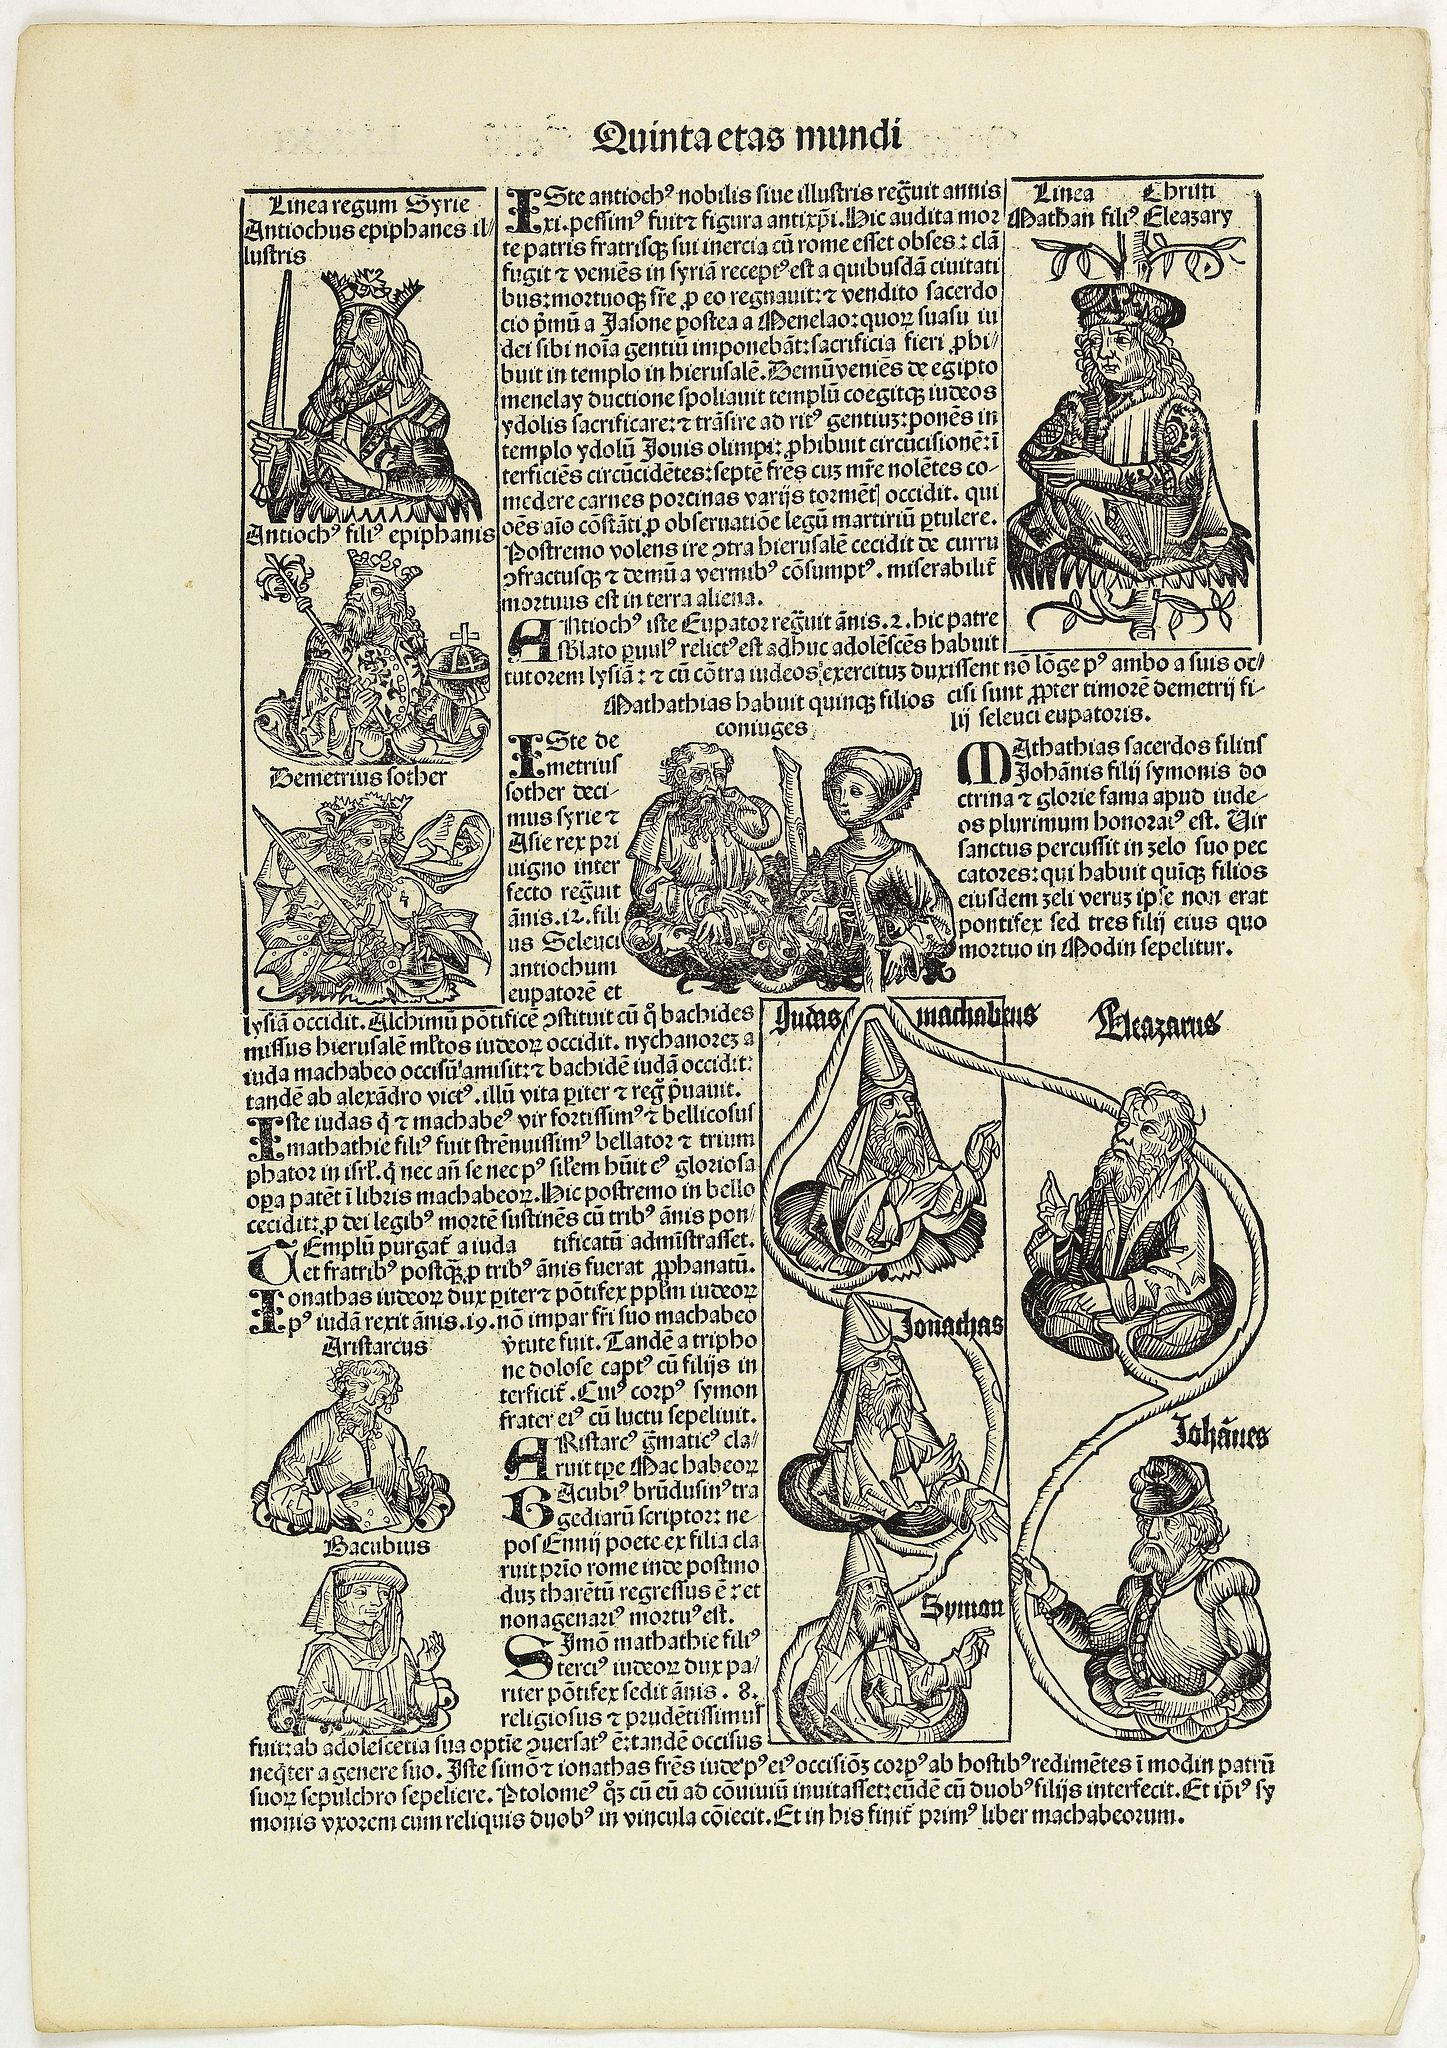 Quinta etas mundi
Linea regum Syrie
Antiochus epiphanes il⸗
lustris
Antiochꝰ filiꝰ epiphanis
Demetrius sother
ISte antiochꝰ nobilis siue illustris reg̃uit annis
xi. pessimꝰ fuit ⁊ figura antixp̃i. Hic audita mor
te patris fratrisqꝫ sui inercia cũ rome esset obses: clã
fugit ⁊ veniẽs in syriã receptꝰ est a quibusdã ciuitati
bus: mortuoqꝫ fr̃e ꝓ eo regnauit: ⁊ vendito sacerdo
cio p̃mũ a Jasone postea a Menelao: quoꝝ suasu iu
dei sibi noĩa gentiũ imponebãt: sacrificia fieri ꝓhi⸗
buit in templo in hierusalẽ. Demũ veniẽs de egipto
menelay ductione spoliauit templũ coegitqꝫ iudeos
ydolis sacrificare: ⁊ trãsire ad ritꝰ gentiuꝫ: ponẽs in
templo ydolũ Jouis olimpi: ꝓhibuit circũcisionẽ: ĩ
terficiẽs circũcidẽtes: septẽ fr̃es cuꝫ mr̃e nolẽtes co⸗
medere carnes porcinas varijs tormẽt occidit. qui
oẽs aĩo cõstãti ꝓ obseruatiõe legũ martiriũ ꝑtulere.
Postremo volens ire ꝯtra hierusalẽ cecidit de curru
ꝯfractusqꝫ ⁊ demũ a vermibꝰ cõsumptꝰ. miserabilit̃
mortuus est in terra aliena.
ANtiochꝰ iste Eupator reg̃uit ãnis .2. hic patre
sublato ꝑuulꝰ relictꝰ est adhuc adolẽscẽs habuit
tutorem lysiã: ⁊ cũ cõtra iudeos exercituꝫ duxissent nõ lõge pꝰ ambo a suis oc⸗
cisi sunt ꝓpter timorẽ demetrij fi⸗
lij seleuci eupatoris.
Linea Christi
Mathan filiꝰ Eleazary
Mathathias habuit quinqꝫ filios
coniuges
ISte de
metrius
sother deci⸗
mus syrie ⁊
Asie rex pri
uigno inter
fecto reg̃uit
ãnis .12. fili
us Seleuci
antiochum
eupatorẽ et
lysiã occidit. Alchimũ põtificẽ ꝯstituit cũ q̃ bachides
missus hierusalẽ ml̃tos iudeoꝝ occidit. nychanoreꝫ a
iuda machabeo occisũ amisit: ⁊ bachidẽ iudã occidit:
tandẽ ab alexãdro victꝰ. illũ vita ꝑiter ⁊ reg̃ p̃uauit.
MAthathias sacerdos filius
Johãnis filij symonis do
ctrina ⁊ glorie fama apud iude⸗
os plurimum honoratꝰ est. Uir
sanctus percussit in zelo suo pec
catores: qui habuit quĩqꝫ filios
eiusdem zeli veruꝫ ipse non erat
pontifex sed tres filij eius quo
mortuo in Modin sepelitur.
Iste iudas q̃ ⁊ machabeꝰ vir fortissimꝰ ⁊ bellicosus
mathathie filiꝰ fuit strẽnuissimꝰ bellator ⁊ trium
phator in isrl̃. q̃ nec añ se nec pꝰ sil̃em hũit cꝰ gloriosa
oꝑa patẽt ĩ libris machabeoꝝ. Hic postremo in bello
cecidit: ꝓ dei legibꝰ mortẽ sustinẽs cũ tribꝰ ãnis pon⸗
tificatũ admĩstrasset.
TEmplũ purgat̃ a iuda
et fratribꝰ postqꝫ̃ ꝑ tribꝰ ãnis fuerat ꝓphanatũ.
Ionathas iudeoꝝ dux ꝑiter ⁊ põtifex ppl̃m iudeoꝝ
pꝰ iudã rexit ãnis .19. nõ impar fr̃i suo machabeo
v̾tute fuit. Tandẽ a tripho
ne dolose captꝰ cũ filijs in
terficit̃. Cuiꝰ corpꝰ symon
frater eiꝰ cũ luctu sepeliuit.
Aristarcus
ARistarcꝰ g̃maticꝰ cla⸗
ruit tꝑe Machabeoꝝ
BAcubiꝰ brũdusinꝰ tra
gediarũ scriptor: ne⸗
pos Ennij poete ex filia cla
ruit prĩo rome inde postmo
duꝫ tharẽtũ regressus ẽ: et
nonagenariꝰ mortuꝰ est.
Bacubius
SJmõ mathathie filiꝰ
terciꝰ iudeoꝝ dux pa⸗
riter põtifex sedit ãnis .8.
religiosus ⁊ prudẽtissimus
fuit: ab adolescẽtia sua optĩe ꝯuersatꝰ ẽ: tandẽ occisus
neq̃ter a genere suo. Iste simõ ⁊ ionathas fr̃es iude pꝰ eiꝰ occisiõꝫ corpꝰ ab hostibꝰ redimẽtes ĩ modin patrũ
suoꝝ sepulchro sepeliere. Ptolomeꝰ q̃ꝫ cũ eũ ad cõuiuiũ inuitasset: eũdẽ cũ duobꝰ filijs interfecit. Et ip̃iꝰ sy
monis vxorem cum reliquis duobꝰ in vincula cõiecit. Et in his finit̃ primꝰ liber machabeorum.
Judas machabeus
Eleazarus
Jonathas
Johãnes
Symon